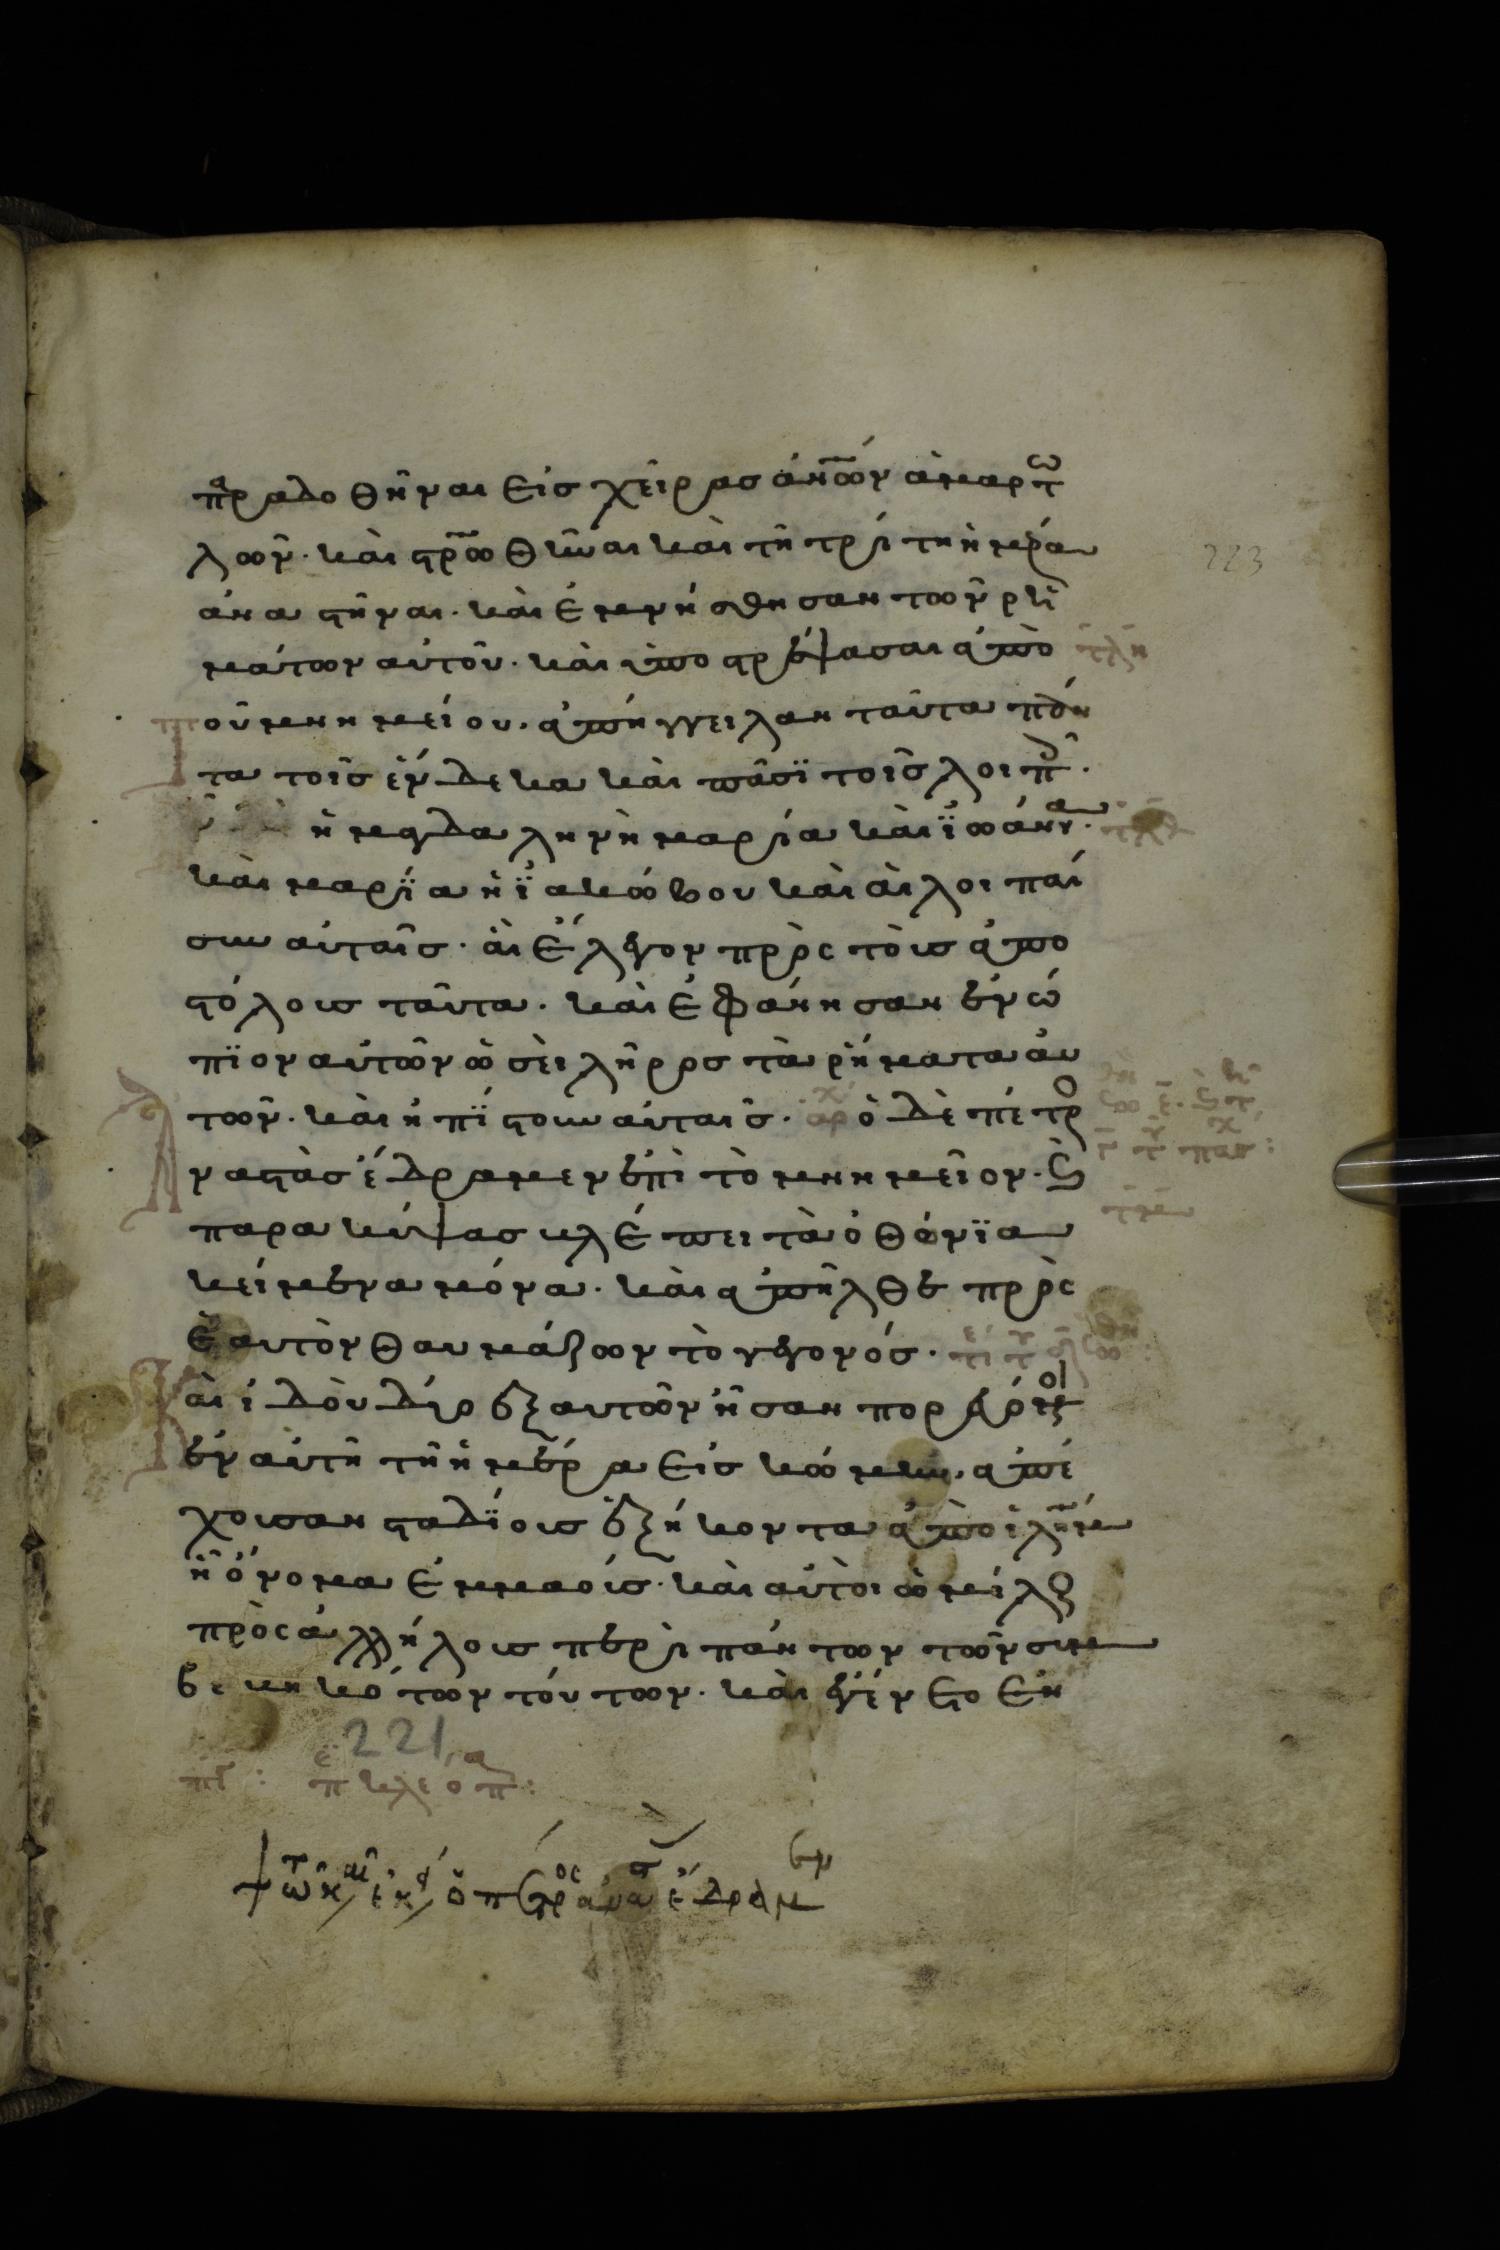 παραδοθῆναι εἰς χεῖρας ἀν̅ων ἁμαρτω
λῶν· καὶ στρω̅θῆναι καὶ τῇ τρίτῃ ἡμέρα
ἀναστῆναι· καὶ ἐμνήσθησαν τῶν ρη
μάτων αὐτοῦ· καὶ ὑποστρέψασαι ἀπὸ
τοῦ μνημείου· ἀπήγγειλαν ταῦτα πάν
τα τοῖς ἕνδεκα καὶ πᾶσϊ τοῖς λοιπ·
ἡ μαγδαληνὴ μαρία καὶ ϊωάννα·
καὶ μαρΐα ἡ ϊακώβου καὶ αἱ λοιπαί
σὺν αὐταῖς· αἱ ἔλεγον πρὸς τοὺς ἀπο
στόλους ταῦτα· καὶ ἐφάνησαν ἐνώ
πϊον αὐτῶν ὡσεὶ λῆρος τὰ ρήματα αὐ
τῶν· καὶ ἠπΐστουν αὐταῖς· αρχ ὁ δὲ πέτρο
ναστὰς ἔδραμεν ἐπὶ τὸ μνημεῖον· ϗ
παρακύψας βλέπει τὰ ὀθόνϊα
κείμενα μόνα· καὶ ἀπῆλθε πρὸς
ἑαυτὸν θαυμάζων τὸ γεγονός·
αι ἰδοὺ δύο ἐξ αυτῶν ἦσαν πορευόμενοι
ἐν αὐτῆ τῆ ἡμέρα εἰς κώμην ἀπέ
χουσαν σταδΐους ἑξήκοντα ἀπὸ ιλη̅μ
ἧ ὄνομα ἐμμαούς· καὶ αὐτοὶ ὡμίλουν
πρὸς ἀλλήλους περὶ πάντων τῶν συμ
βεβηκότων τούτων· καὶ ἐγένετο ἐν
221
223